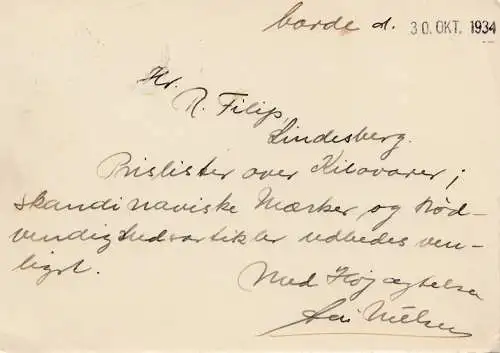 Varde d. 30. OKT. 1934
Hr.
R. Filip,
Lindesberg.
Prislister over Kilovarer;
skandinaviske Mærker og Nød-
vendighedsartikler udbedes ven-
ligst.
Med Højagtelse
Nielsen